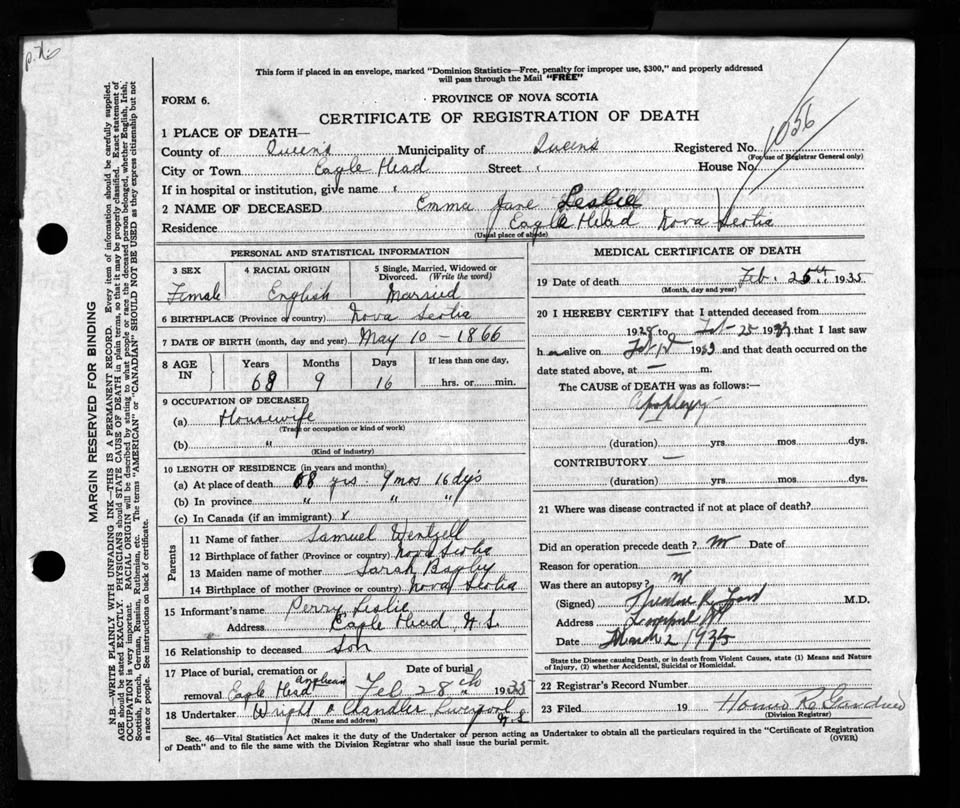 P.N.
This form if placed in an envelope, marked "Dominion Statistics—Free, penalty for improper use, $300," and properly addressed
will pass through the Mail "FREE"
FORM 6.
PROVINCE OF NOVA SCOTIA
CERTIFICATE OF REGISTRATION OF DEATH
1056
1 PLACE OF DEATH—
County of Queen's Municipality of Queen's Registered No.
(For use of Registrar General only)
City or Town Eagle Head Street House No.
If in hospital or institution, give name
2 NAME OF DECEASED Emma Jane Leslie
Residence Eagle Head Nova Scotia
(Usual place of abode)
PERSONAL AND STATISTICAL INFORMATION
3 SEX 4 RACIAL ORIGIN 5 Single, Married, Widowed or
Divorced. (Write the word)
Female English Married
6 BIRTHPLACE (Province or country) Nova Scotia
7 DATE OF BIRTH (month, day and year) May 10 - 1866
8 AGE IN Years Months Days If less than one day,
68 9 16 hrs. or min.
9 OCCUPATION OF DECEASED
(a) Housewife
(Trade or occupation or kind of work)
(b) "
(Kind of industry)
10 LENGTH OF RESIDENCE (in years and months)
(a) At place of death 68 yrs. 9 mos 16 dy's
(b) In province " " "
(c) In Canada (if an immigrant) x
Parents
11 Name of father Samuel Wentzell
12 Birthplace of father (Province or country) Nova Scotia
13 Maiden name of mother Sarah
14 Birthplace of mother (Province or country) Nova Scotia
15 Informant's name Perry Leslie
Address Eagle Head, N.S.
16 Relationship to deceased Son
17 Place of burial, cremation or Date of burial
removal Eagle Head Anglican Feb 28th 1935
18 Undertaker Wright & Chandler Liverpool
N.S.
(Name and address)
MEDICAL CERTIFICATE OF DEATH
19 Date of death Feb. 25th 1935
(Month, day and year)
20 I HEREBY CERTIFY that I attended deceased from
19 to Feb - 25 19 that I last saw
h alive on 19 and that death occurred on the
date stated above, at — m.
The CAUSE OF DEATH was as follows:—
Apoplexy
(duration) yrs. mos. dys.
CONTRIBUTORY —
(duration) yrs. mos. dys.
21 Where was disease contracted if not at place of death?
Did an operation precede death? Date of
Reason for operation
Was there an autopsy?
(Signed) M.D.
Address
Date March 2 1935
State the Disease causing Death, or in death from Violent Causes, state (1) Means and Nature
of Injury, (2) whether Accidental, Suicidal or Homicidal.
22 Registrar's Record Number
23 Filed 19
(Division Registrar)
Sec. 46—Vital Statistics Act makes it the duty of the Undertaker or person acting as Undertaker to obtain all the particulars required in the "Certificate of Registration
of Death" and to file the same with the Division Registrar who shall issue the burial permit. (OVER)
MARGIN RESERVED FOR BINDING
N.B.—WRITE PLAINLY WITH UNFADING INK—THIS IS A PERMANENT RECORD. Every item of information should be carefully supplied.
AGE should be stated EXACTLY. PHYSICIANS should STATE CAUSE OF DEATH in plain terms, so that it may be properly classified. Exact statement of
OCCUPATION is very important. RACIAL ORIGIN will be described by stating to what people or race the deceased person belonged, whether English, Irish,
Scottish, French, German, Russian, Ruthenian, etc. The terms "AMERICAN" or "CANADIAN" SHOULD NOT BE USED as they express citizenship but not
a race or people. See instructions on back of certificate.